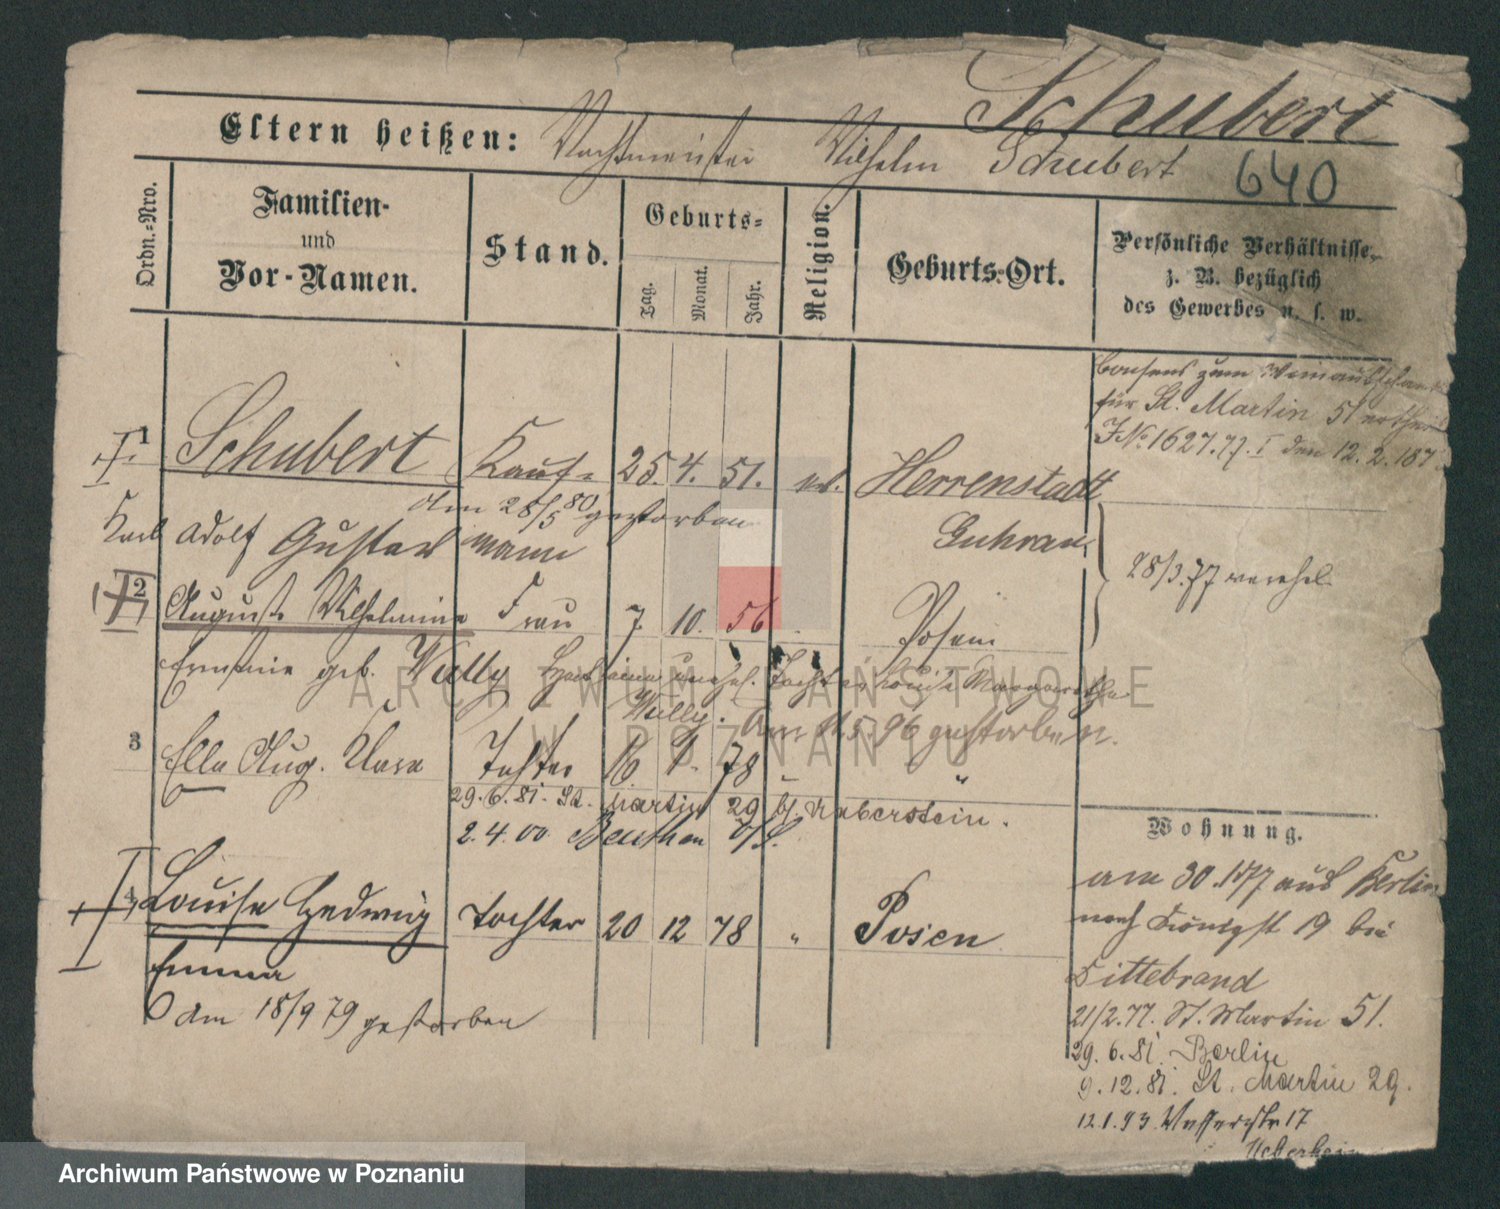 Schubert
Eltern heißen: Wachtmeister Wilhelm Schubert
640
Ordn.-Nro.
Familien-
und
Vor-Namen.
Stand.
Geburts-
Tag.
Monat.
Jahr.
Religion.
Geburts-Ort.
Persönliche Verhältnisse,
z. B. bezüglich
des Gewerbes u. s. w.
Consens zum Weinausschank
für St. Martin 51 ertheilt
J No. 1627.77. I den 12. 2. 187
1 Schubert Kauf- 25. 4. 51. ev. Herrenstadt
am 28/5 80 gestorben
Karl Adolf Gustav mann Guhrau
28/3.77 verehel.
2 Auguste Wilhelmine Frau 7. 10. 56 Posen
Ernestine geb. Wully Hat eine unehel. Tochter Louise Margarethe
Wully. Am 11.5.96 gestorben.
3 Ella Aug. Klara Tochter 16 1. 78 "
29. 6. 81. St. Martin 29 b/
2. 4. 00 Beuthen O/S.
Wohnung.
4 Louise Hedwig Tochter 20 12 78 " Posen
Emma
am 18/9 79 gestorben
am 30.1.77 aus Berlin
nach Königst 19 bei
Dittebrand
21/2.77. St. Martin 51.
29. 6. 81. Berlin
9. 12. 81. St. Martin 29.
12.1.93. 17
ARCHIWUM PAŃSTWOWE
W POZNANIU
Archiwum Państwowe w Poznaniu